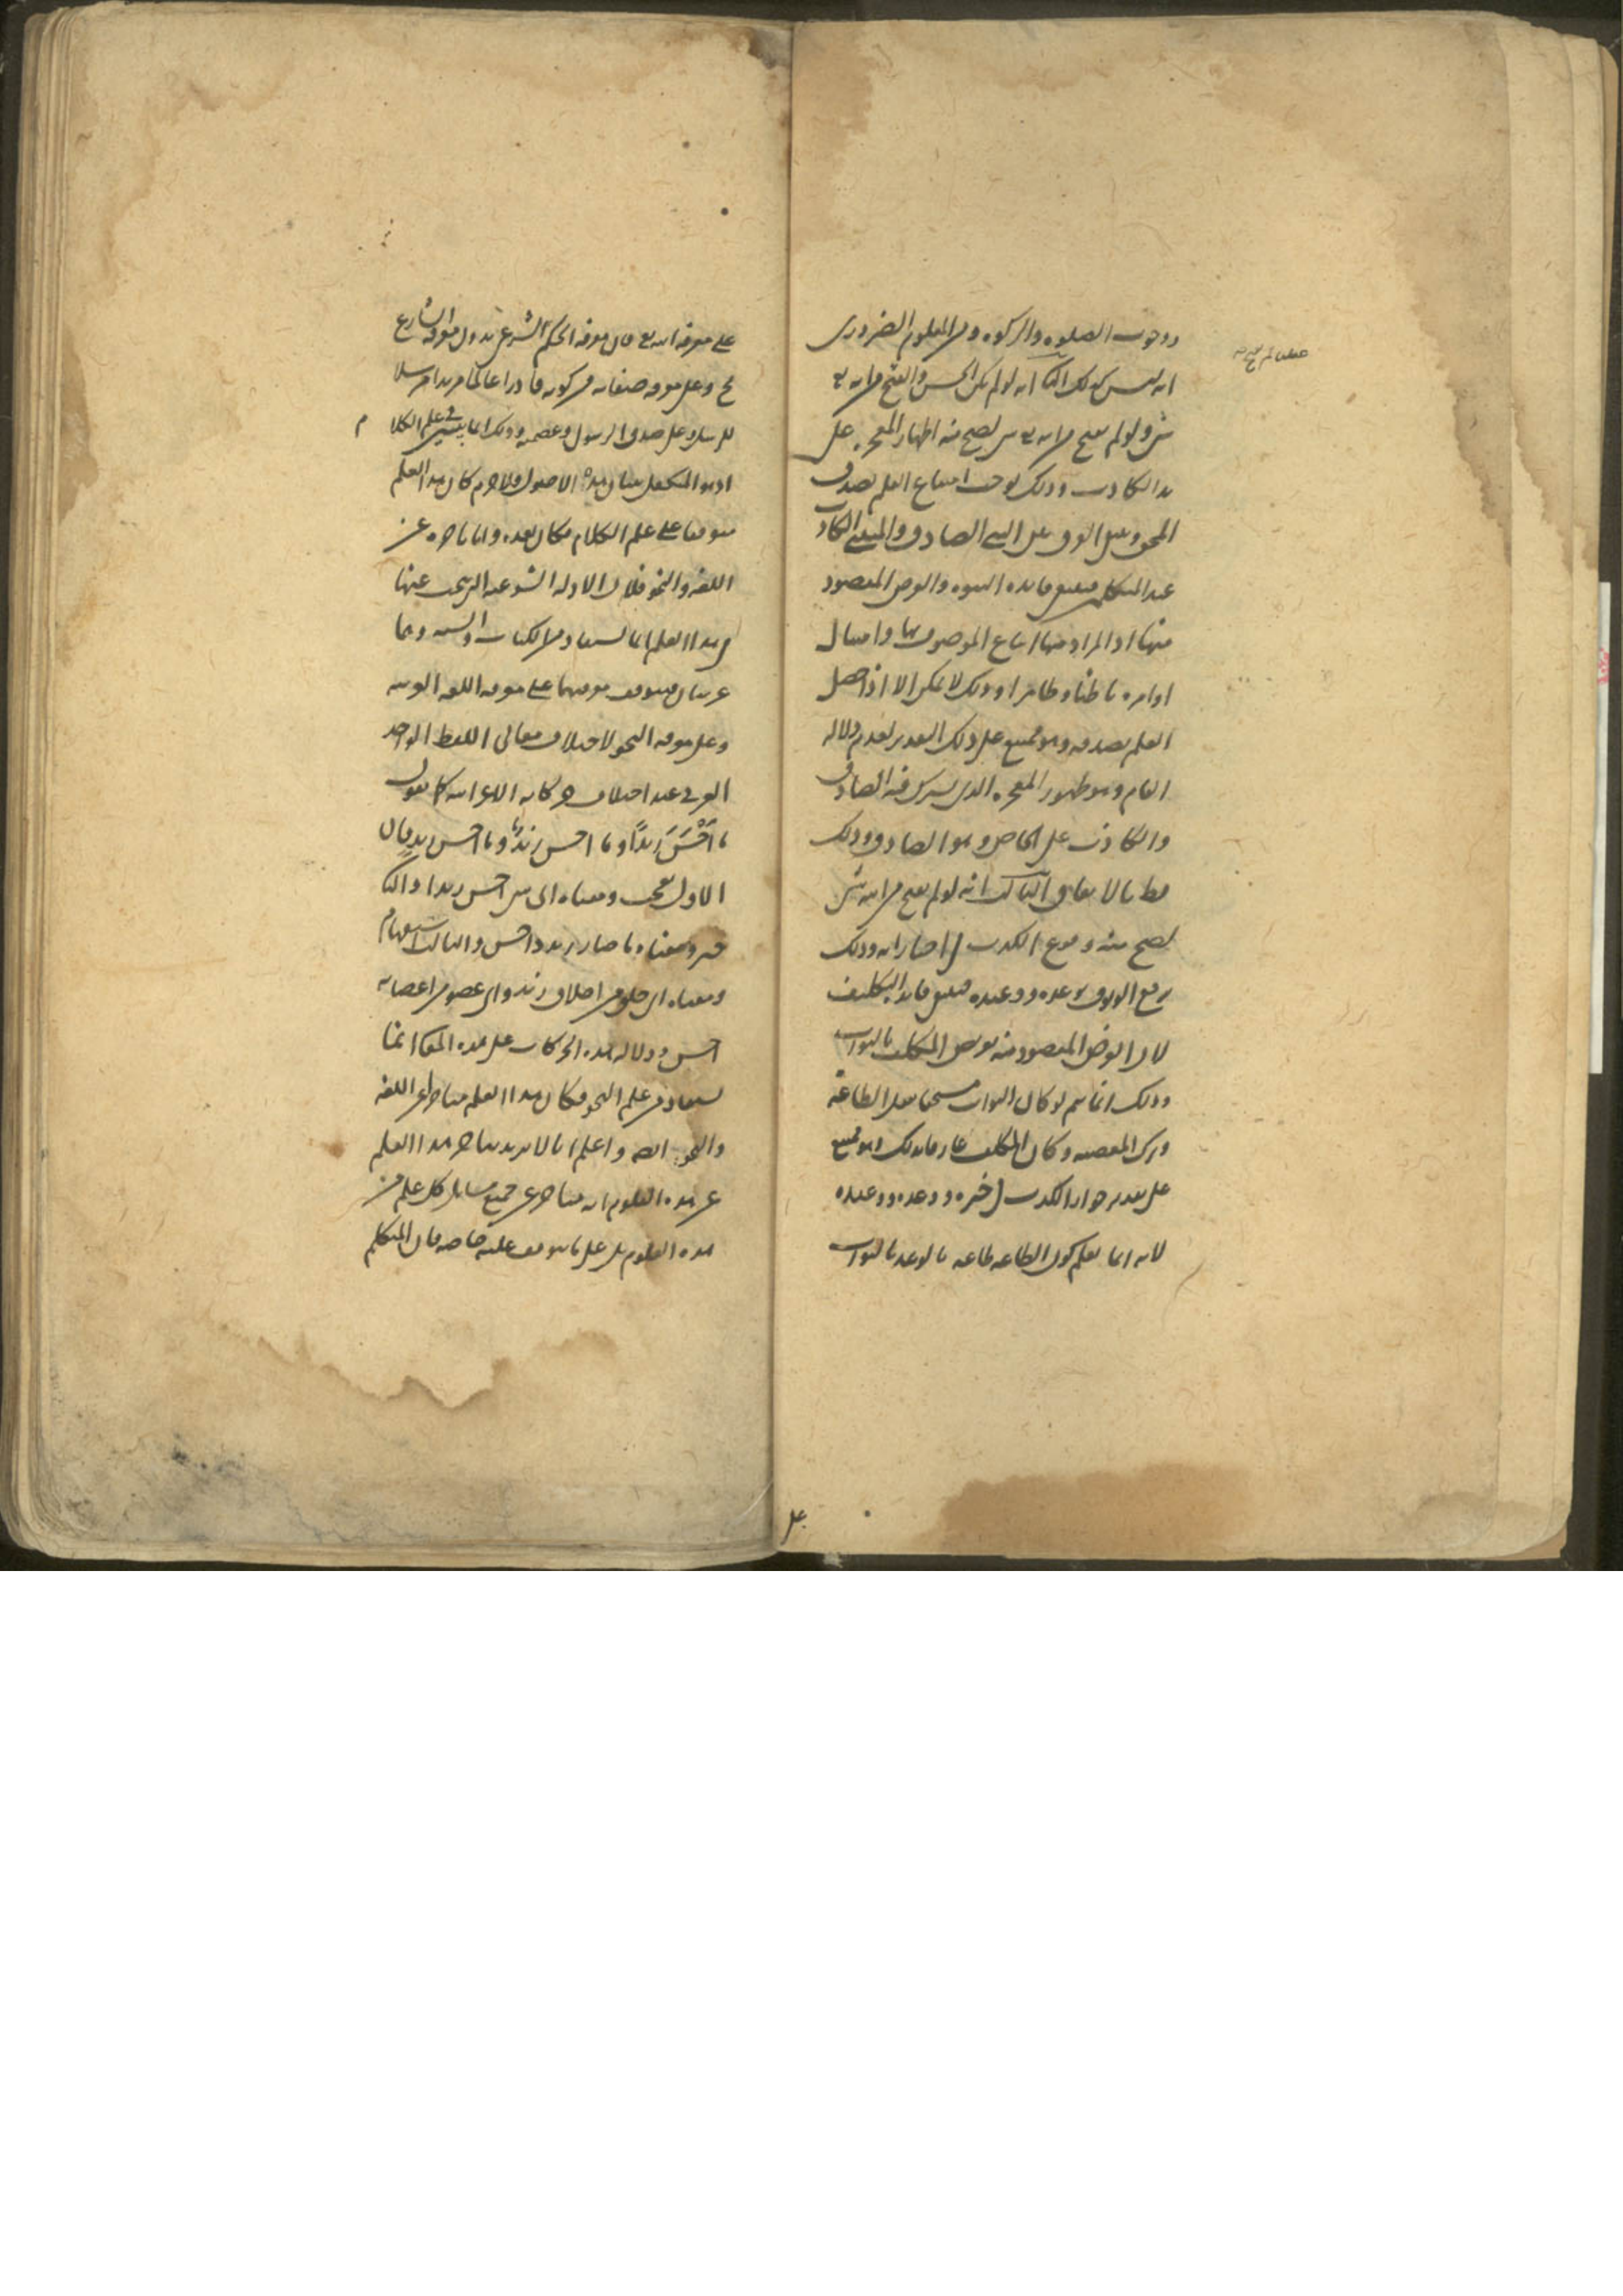 ووجوب الصلوه والزكوه ومن المعلوم الضرورى
انه ليس كذلك الثانى انه لو لم يكن الحسن والقبح
شى ولو لم يقبح من الله تعالى شى لصح منه اظهار المعجزه على
يد الكاذب وذلك يوجب امتناع العلم بصدق
المحق وعدم الفرق بين النبى الصادق والمتنبى الكاذب
عند المتكلمين فينتفى فايده النبوه والغرض المقصود
منها اذ المراد منها اتباع الموصوف بها وامتثال
اوامره باطنا وظاهرا وذلك لا يمكن الا اذا حصل
العلم بصدقه وهو ممتنع على ذلك التقدير لعدم دلاله
العام وهو ظهور المعجزه الذى يشترك فيه الصادق
والكاذب على الخاص وهو الصادق وذلك
باطل بالاتفاق الثالث انه لو لم يقبح من الله شى
لصح منه وقوع الكذب فى اخباراته وذلك
يرفع الوثوق بوعده ووعيده فينتفى فايده التكليف
لان الغرض المقصود منه تعريض المكلف بالثواب
وذلك انما يتم لو كان الثواب مستحقا بفعل الطاعه
وترك المعصيه وكان المكلف عارفا بذلك وهو ممتنع
على تقدير جواز الكذب فى خبره ووعده ووعيده
لانه انما يعلم كون الطاعه طاعه بالوعد بالثواب
على
على معرفه الله تعالى فان معرفه الحكم الشرعى بدون معرفه الشارع
مح وعلى معرفه صفاته من كونه قادرا عالما مريدا مرسلا
للرسل وعلى صدق الرسول وعصمته وذلك انما يتبين فى علم الكلام
اذ هو المتكفل ببيان هذه الاصول فلا جرم كان هذا العلم
متوقفا على علم الكلام فكان بعده واما تاخره عن
اللغه والنحو فلان الادله الشرعيه التى يبحث عنها
فى هذا العلم انما تستفاد من الكتاب والسنه وهما
عربيان فيتوقف معرفتهما على معرفه اللغه العربيه
وعلى معرفه النحو لاختلاف معانى اللفظ الواحد
العربى عند اختلاف حركاته الاعرابيه كما تقول
ما اَحْسَنَ زيداً وما احسن زيدٌ وما احسن زيدٍ فان
الاول تعجب ومعناه اى شى احسن زيدا والثانى
خبر ومعناه ما صار زيد ذا حسن والثالث استفهام
ومعناه اى خلق من اخلاق زيد واى عضو من اعضائه
احسن ودلاله هذه الحركات على هذه المعانى انما
تستفاد من علم النحو فكان هذا العلم متاخرا عن اللغه
والنحو ايضا واعلم انا لا نريد بتاخر هذا العلم
عن هذه العلوم انه متاخر عن جميع مسايل كل علم من
هذه العلوم بل على ما يتوقف عليه خاصه فان المتكلم